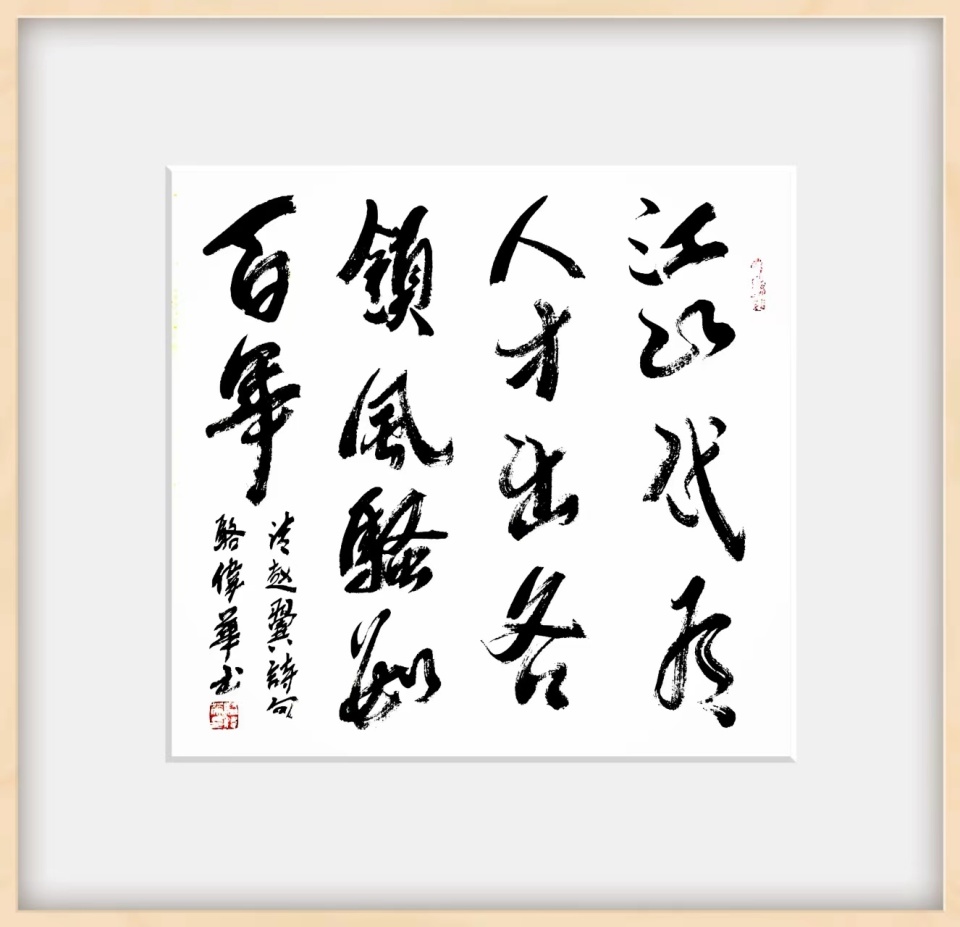 江山代有
人才出各
領風騷數
百年
清趙翼詩句
駱偉華书